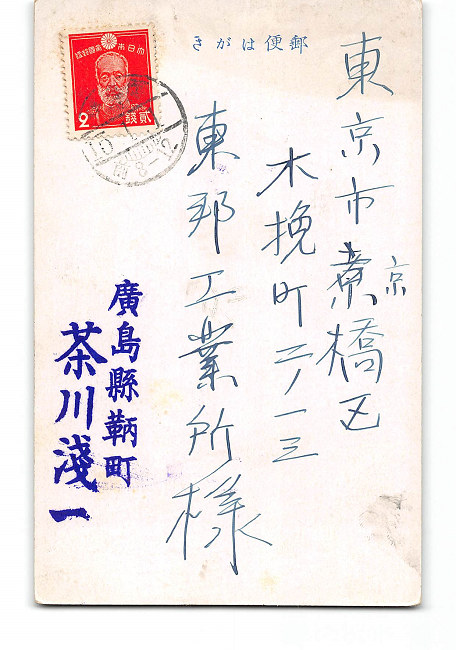 郵便はがき
東京市京橋区
京
木挽町二ノ一三
東邦工業所様
廣島縣鞆町
茶川淺一
大日本帝國郵便
2
貳錢